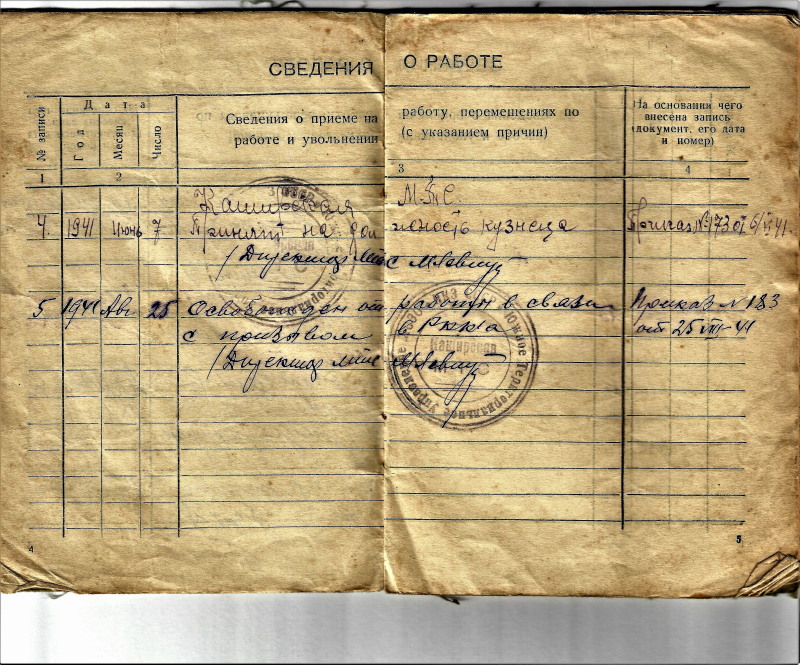 СВЕДЕНИЯ О РАБОТЕ
№ записи
Дата
Год
Месяц
Число
Сведения о приеме на работу, перемещениях по
работе и увольнении (с указанием причин)
На основании чего
внесена запись
(документ, его дата
и номер)
1 2 3 4
Каширская М.Т.С.
4. 1941 Июнь 7 Принят на должность кузнеца Приказ №173 от 6/VI 41.
(Директор МТС
5 1941 Авг 25 Освобожден от работы в связи Приказ № 183
с призывом в РККА от 25 VIII-41
(Директор МТС
Южное Территориальное Управление
Каширская
4 5